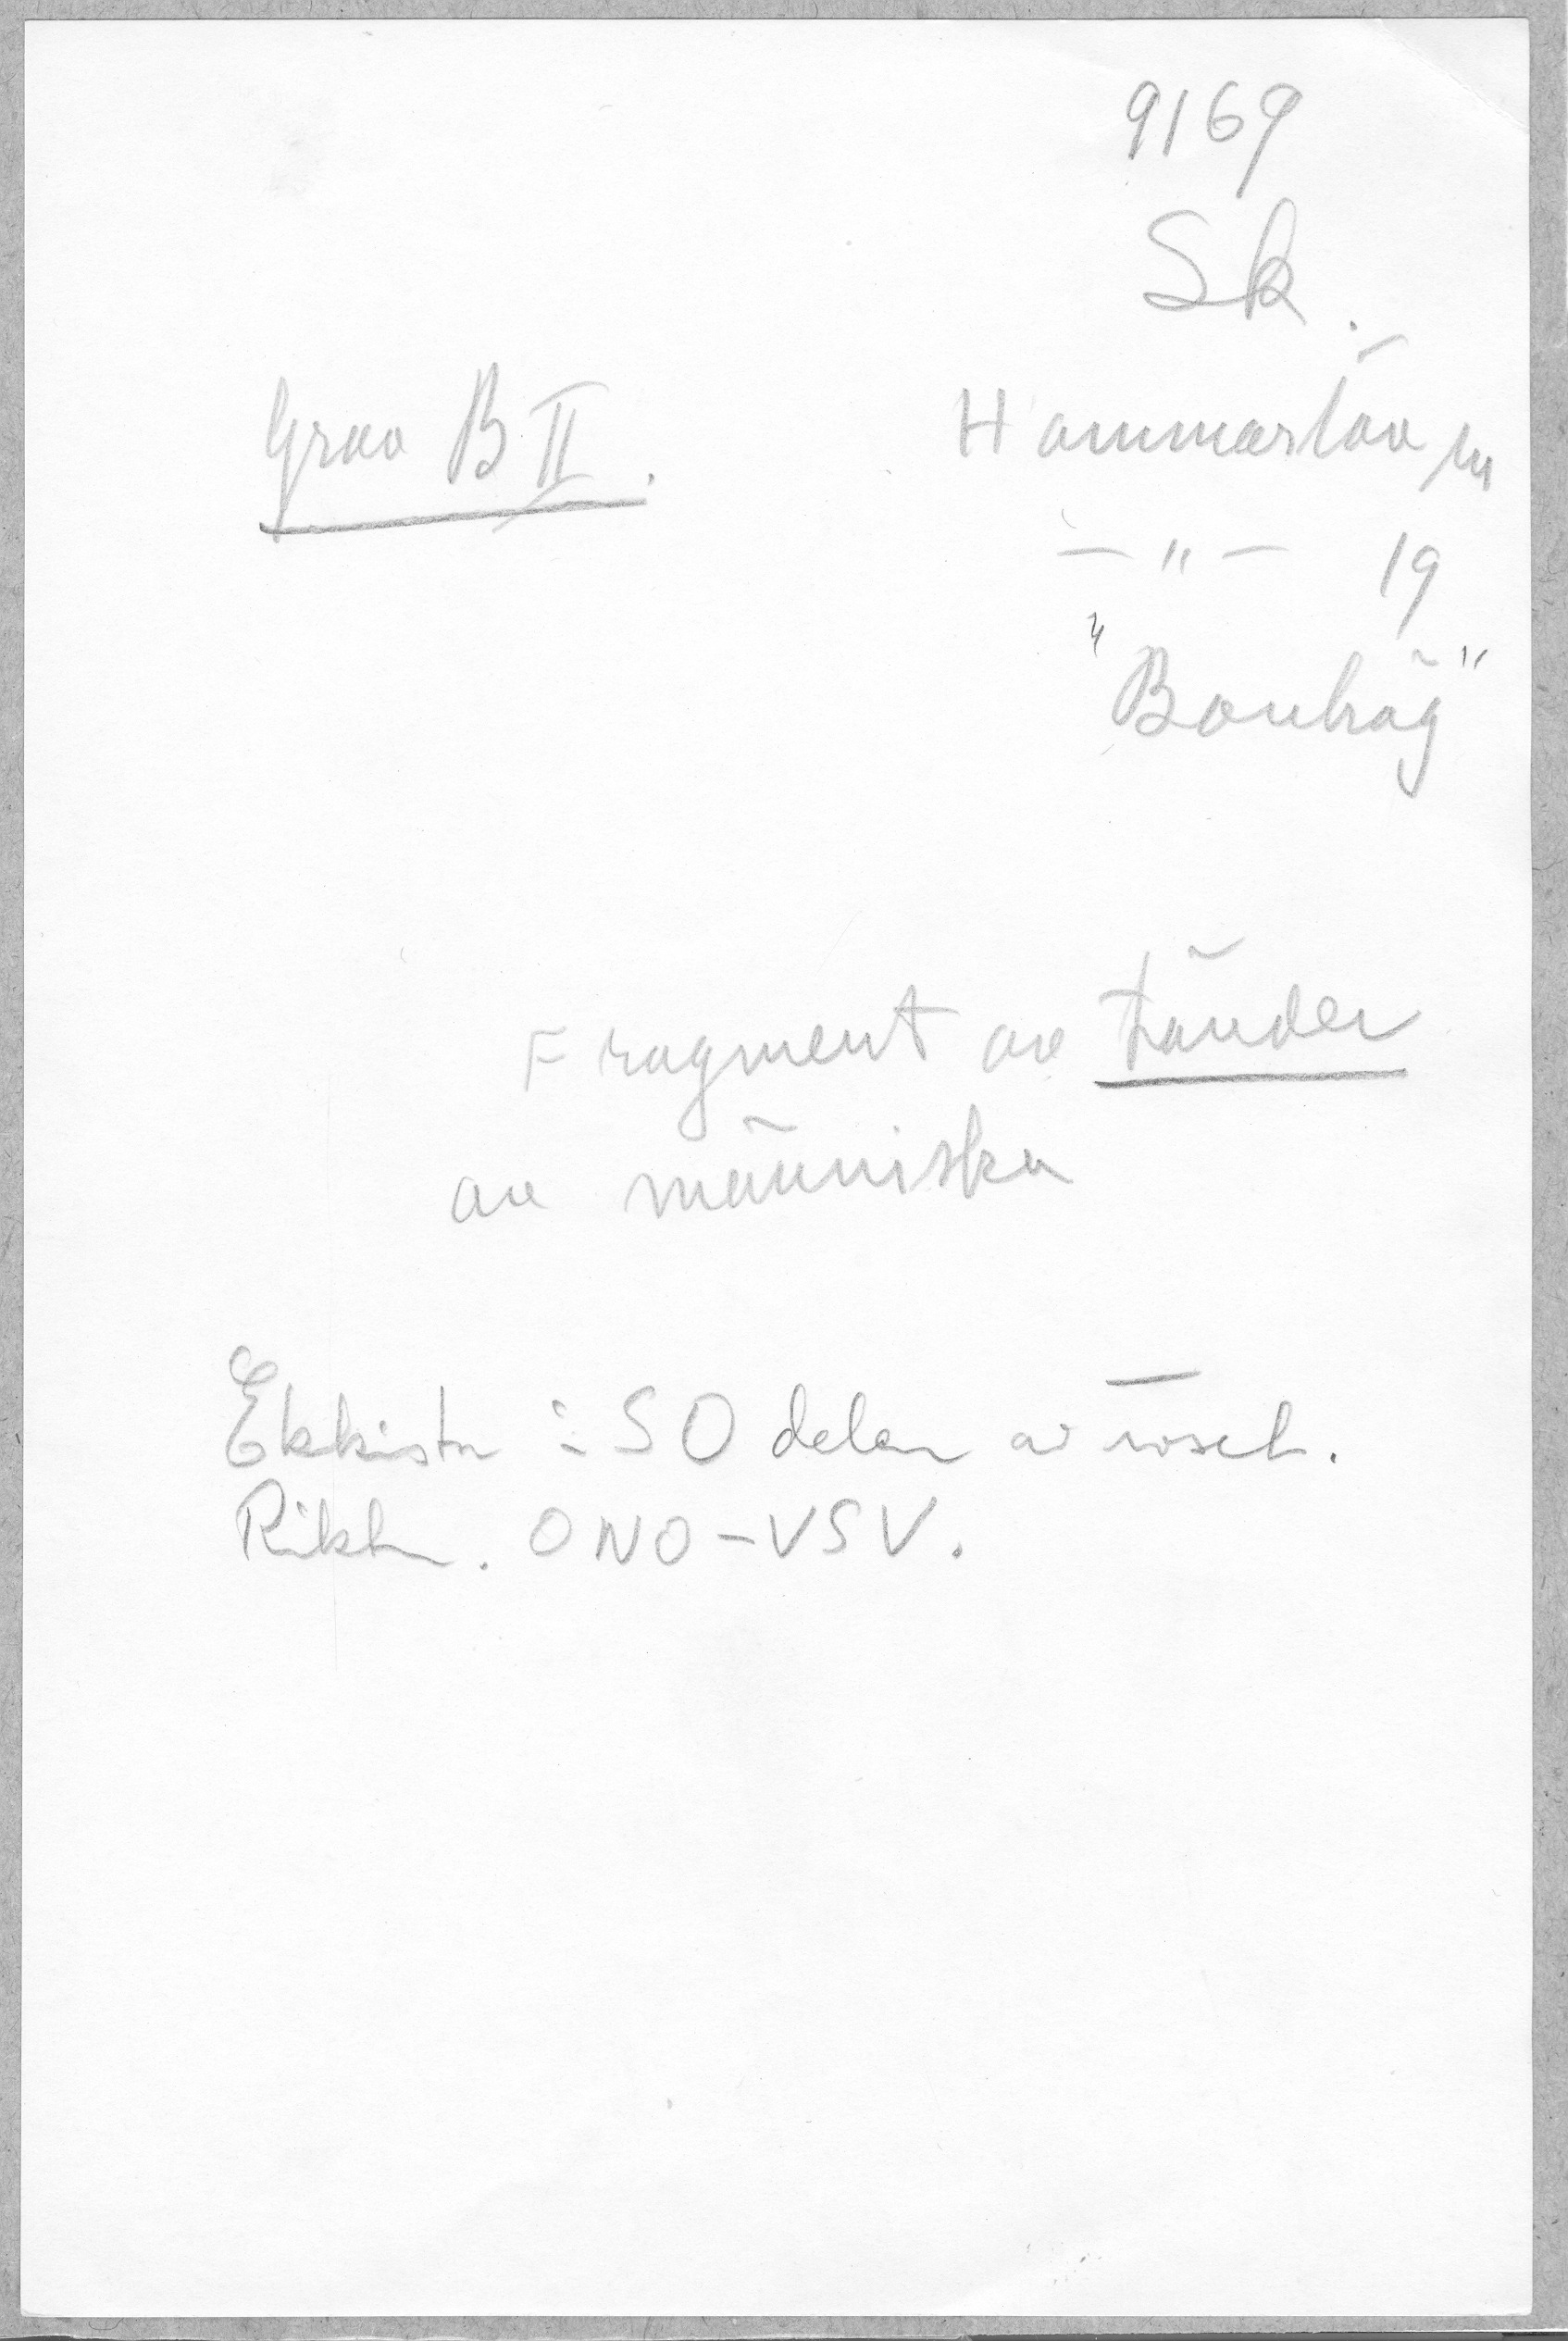 9169
Sk.
Grav B II.
Hammarlöv sn
— " — 19
"Bonhög"
Fragment av tänder
av människa
Ekkista i SO delen av röset.
Riktn. ONO-VSV.